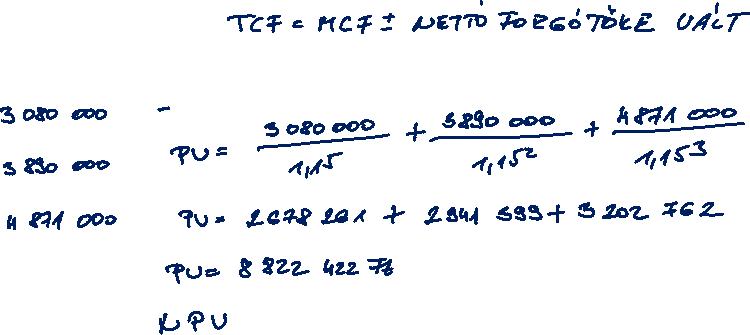 TCF = MCF ± NETTÓ FORGÓTŐKE VÁLT
3 080 000 -
3 890 000
4 871 000
PV = 3 080 000 / 1,15 + 3 890 000 / 1,15² + 4 871 000 / 1,15³
PV = 2 678 261 + 2 941 399 + 3 202 762
PV = 8 822 422 Ft
NPV